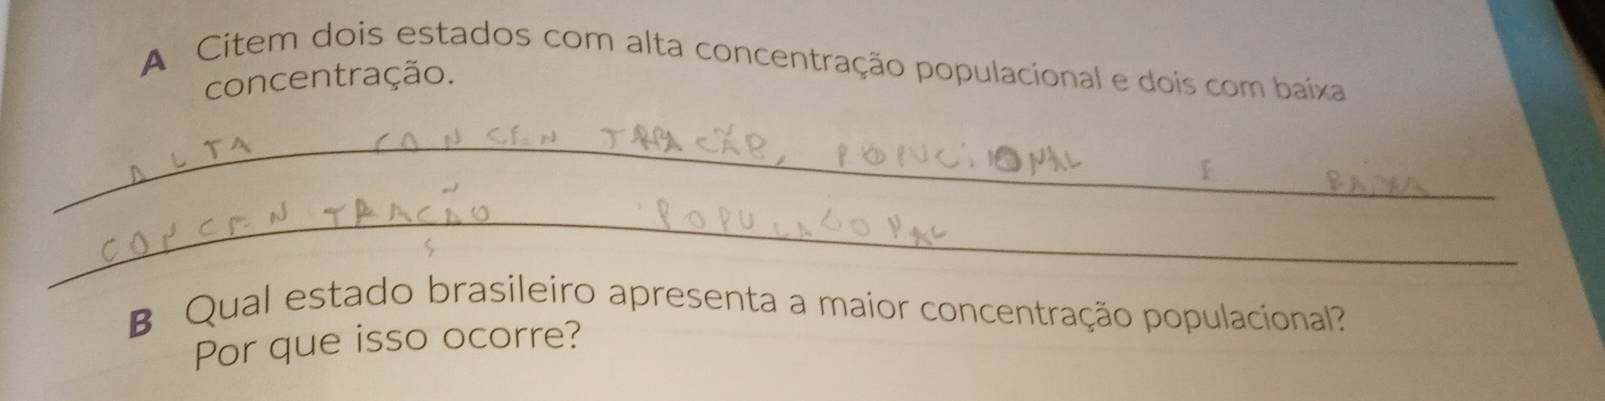 A Citem dois estados com alta concentração populacional e dois com baixa
concentração.
ALTA CONCENTRAÇÃO, POPUCIONAL E BAIXA
CONCENTRAÇÃO POPULACONAL
B Qual estado brasileiro apresenta a maior concentração populacional?
Por que isso ocorre?